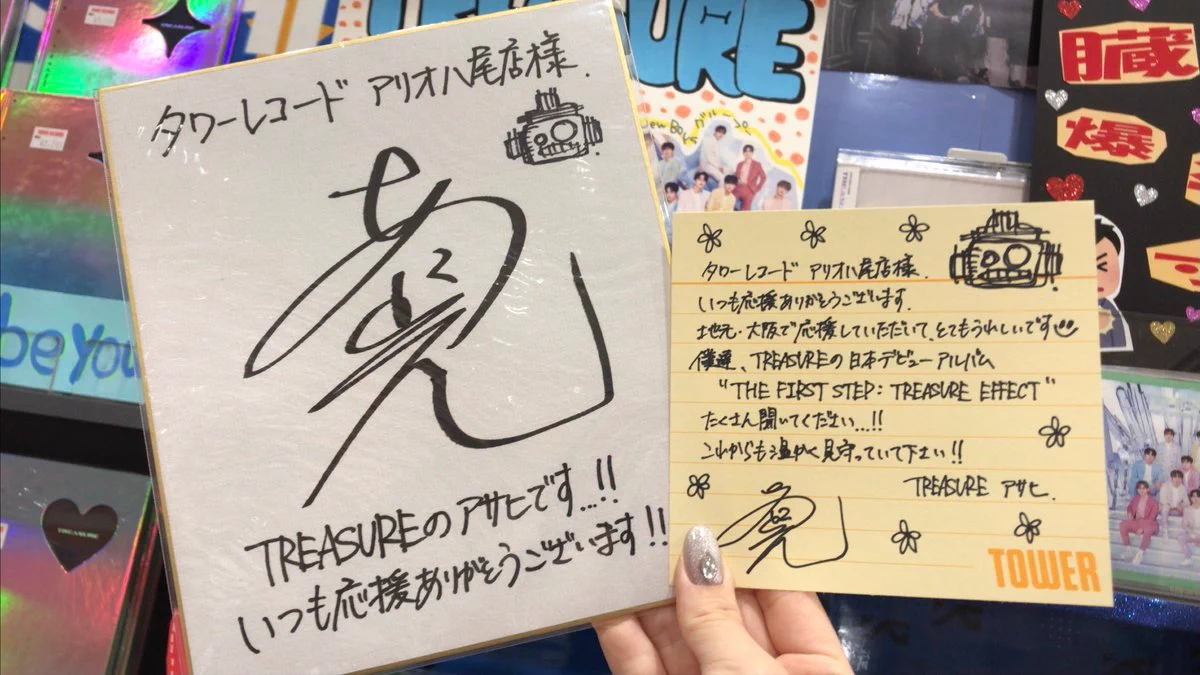 タワーレコード アリオ八尾店様.
TREASUREのアサヒです...!!
いつも応援ありがとうございます!!
タワーレコード アリオ八尾店様.
いつも応援ありがとうございます.
地元・大阪で応援していただいて、とてもうれしいです
僕達、TREASUREの日本デビューアルバム
"THE FIRST STEP: TREASURE EFFECT"
たくさん聞いてください...!!
これからも温かく見守っていて下さい!!
TREASURE アサヒ.
TOWER
be you
蔵
爆